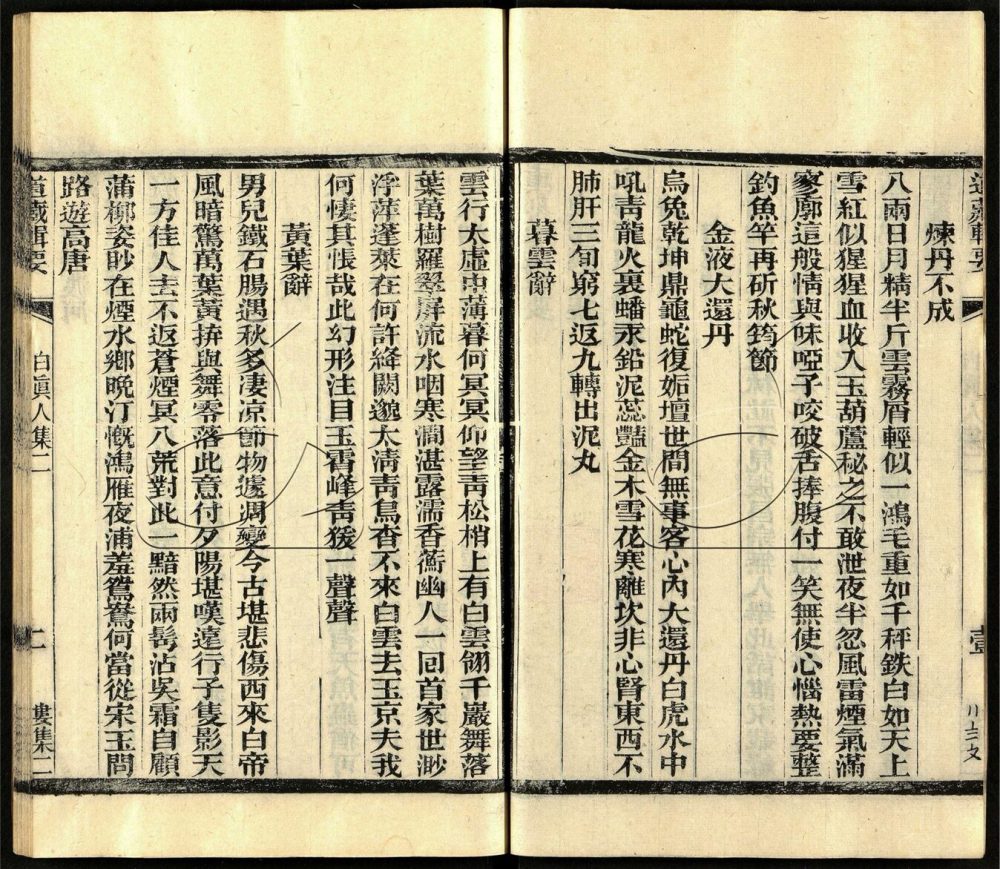 道藏輯要
煉丹不成
八兩日月精半斤雲霧屑輕似一鴻毛重如千秤鉄白如天上
雪紅似猩猩血收入玉葫蘆秘之不敢泄夜半忽風雷煙氣滿
寥廓這般情與味啞子咬破舌捧腹付一笑無使心惱熱要整
釣魚竿再斫秋筠節
金液大還丹
烏兔乾坤鼎龜蛇復姤壇世間無事客心內大還丹白虎水中
吼青龍火裏蟠汞鉛泥蕊豔金木雪花寒離坎非心腎東西不
肺肝三旬窮七返九轉出泥丸
暮雲辭
雲行太虛中薄暮何冥冥仰望青松梢上有白雲翎千巖舞落
葉萬樹羅翠屏流水咽寒澗湛露濡香蘅幽人一回首家世渺
浮萍蓬萊在何許絳闕邈太清青鳥杳不來白雲去玉京夫我
何悽其悵哉此幻形注目玉霄峰青猨一聲聲
黃葉辭
男兒鐵石腸遇秋多凄凉節物遽凋變今古堪悲傷西來白帝
風暗驚萬葉黃拚與舞零落此意付夕陽堪嘆遠行子隻影天
一方佳人去不返蒼煙冥八荒對此一黯然兩髩沾吳霜自顧
蒲柳姿眇在煙水鄉晩汀慨鴻雁夜浦羞鴛鴦何當從宋玉問
路遊高唐
道藏輯要
白眞人集二
二
婁集二